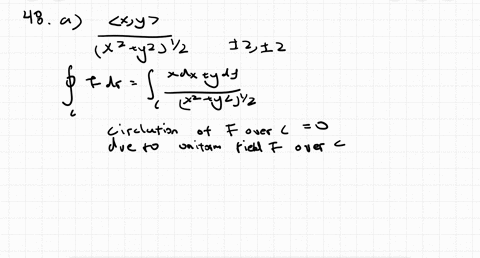 48. a) <x,y> / (x²+y²)^1/2 ±2,±2
∮_c F dr = ∫_c xdx+ydy / (x²+y²)^1/2
circlution of F over c = 0
due to uniform field F over c